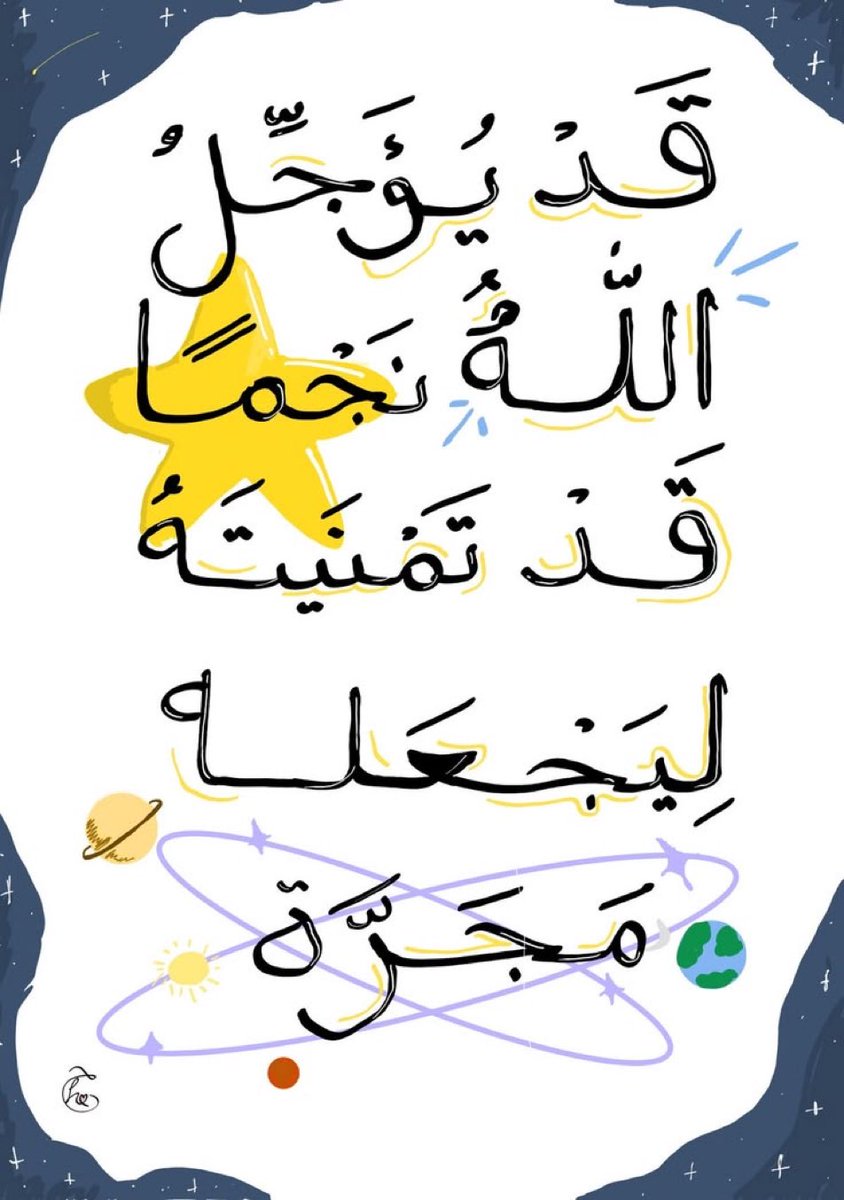 قَدْ يُؤَجِّلُ
اللّٰهُ نَجْمًا
قَدْ تَمْنَيتَهُ
لِيَجْعَله
مَجَرَّة